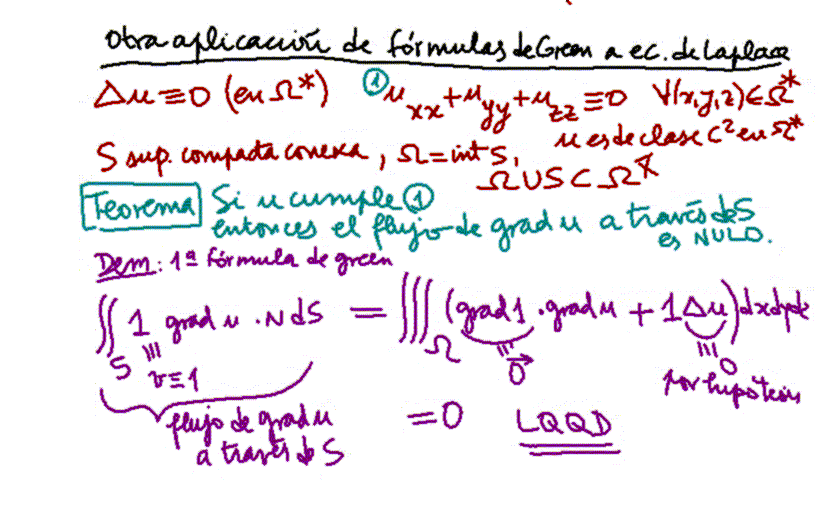 Otra aplicación de fórmulas de Green a ec. de Laplace
Δu ≡ 0 (en Ω*) ① u_xx + u_yy + u_zz ≡ 0 ∀(x,y,z) ∈ Ω*
u es de clase C² en Ω*
S sup. compacta conexa, Ω = int S,
Ω ∪ S ⊂ Ω*
Teorema Si u cumple ①
entonces el flujo de grad u a través de S
es NULO.
Dem: 1ª fórmula de green
∬_S 1 grad u · N dS = ∭_Ω (grad 1 · grad u + 1 Δu) dxdydz
≡ v ≡ 1 ≡ 0⃗ ≡ 0
por hipótesis
flujo de grad u = 0 LQQD
a través de S